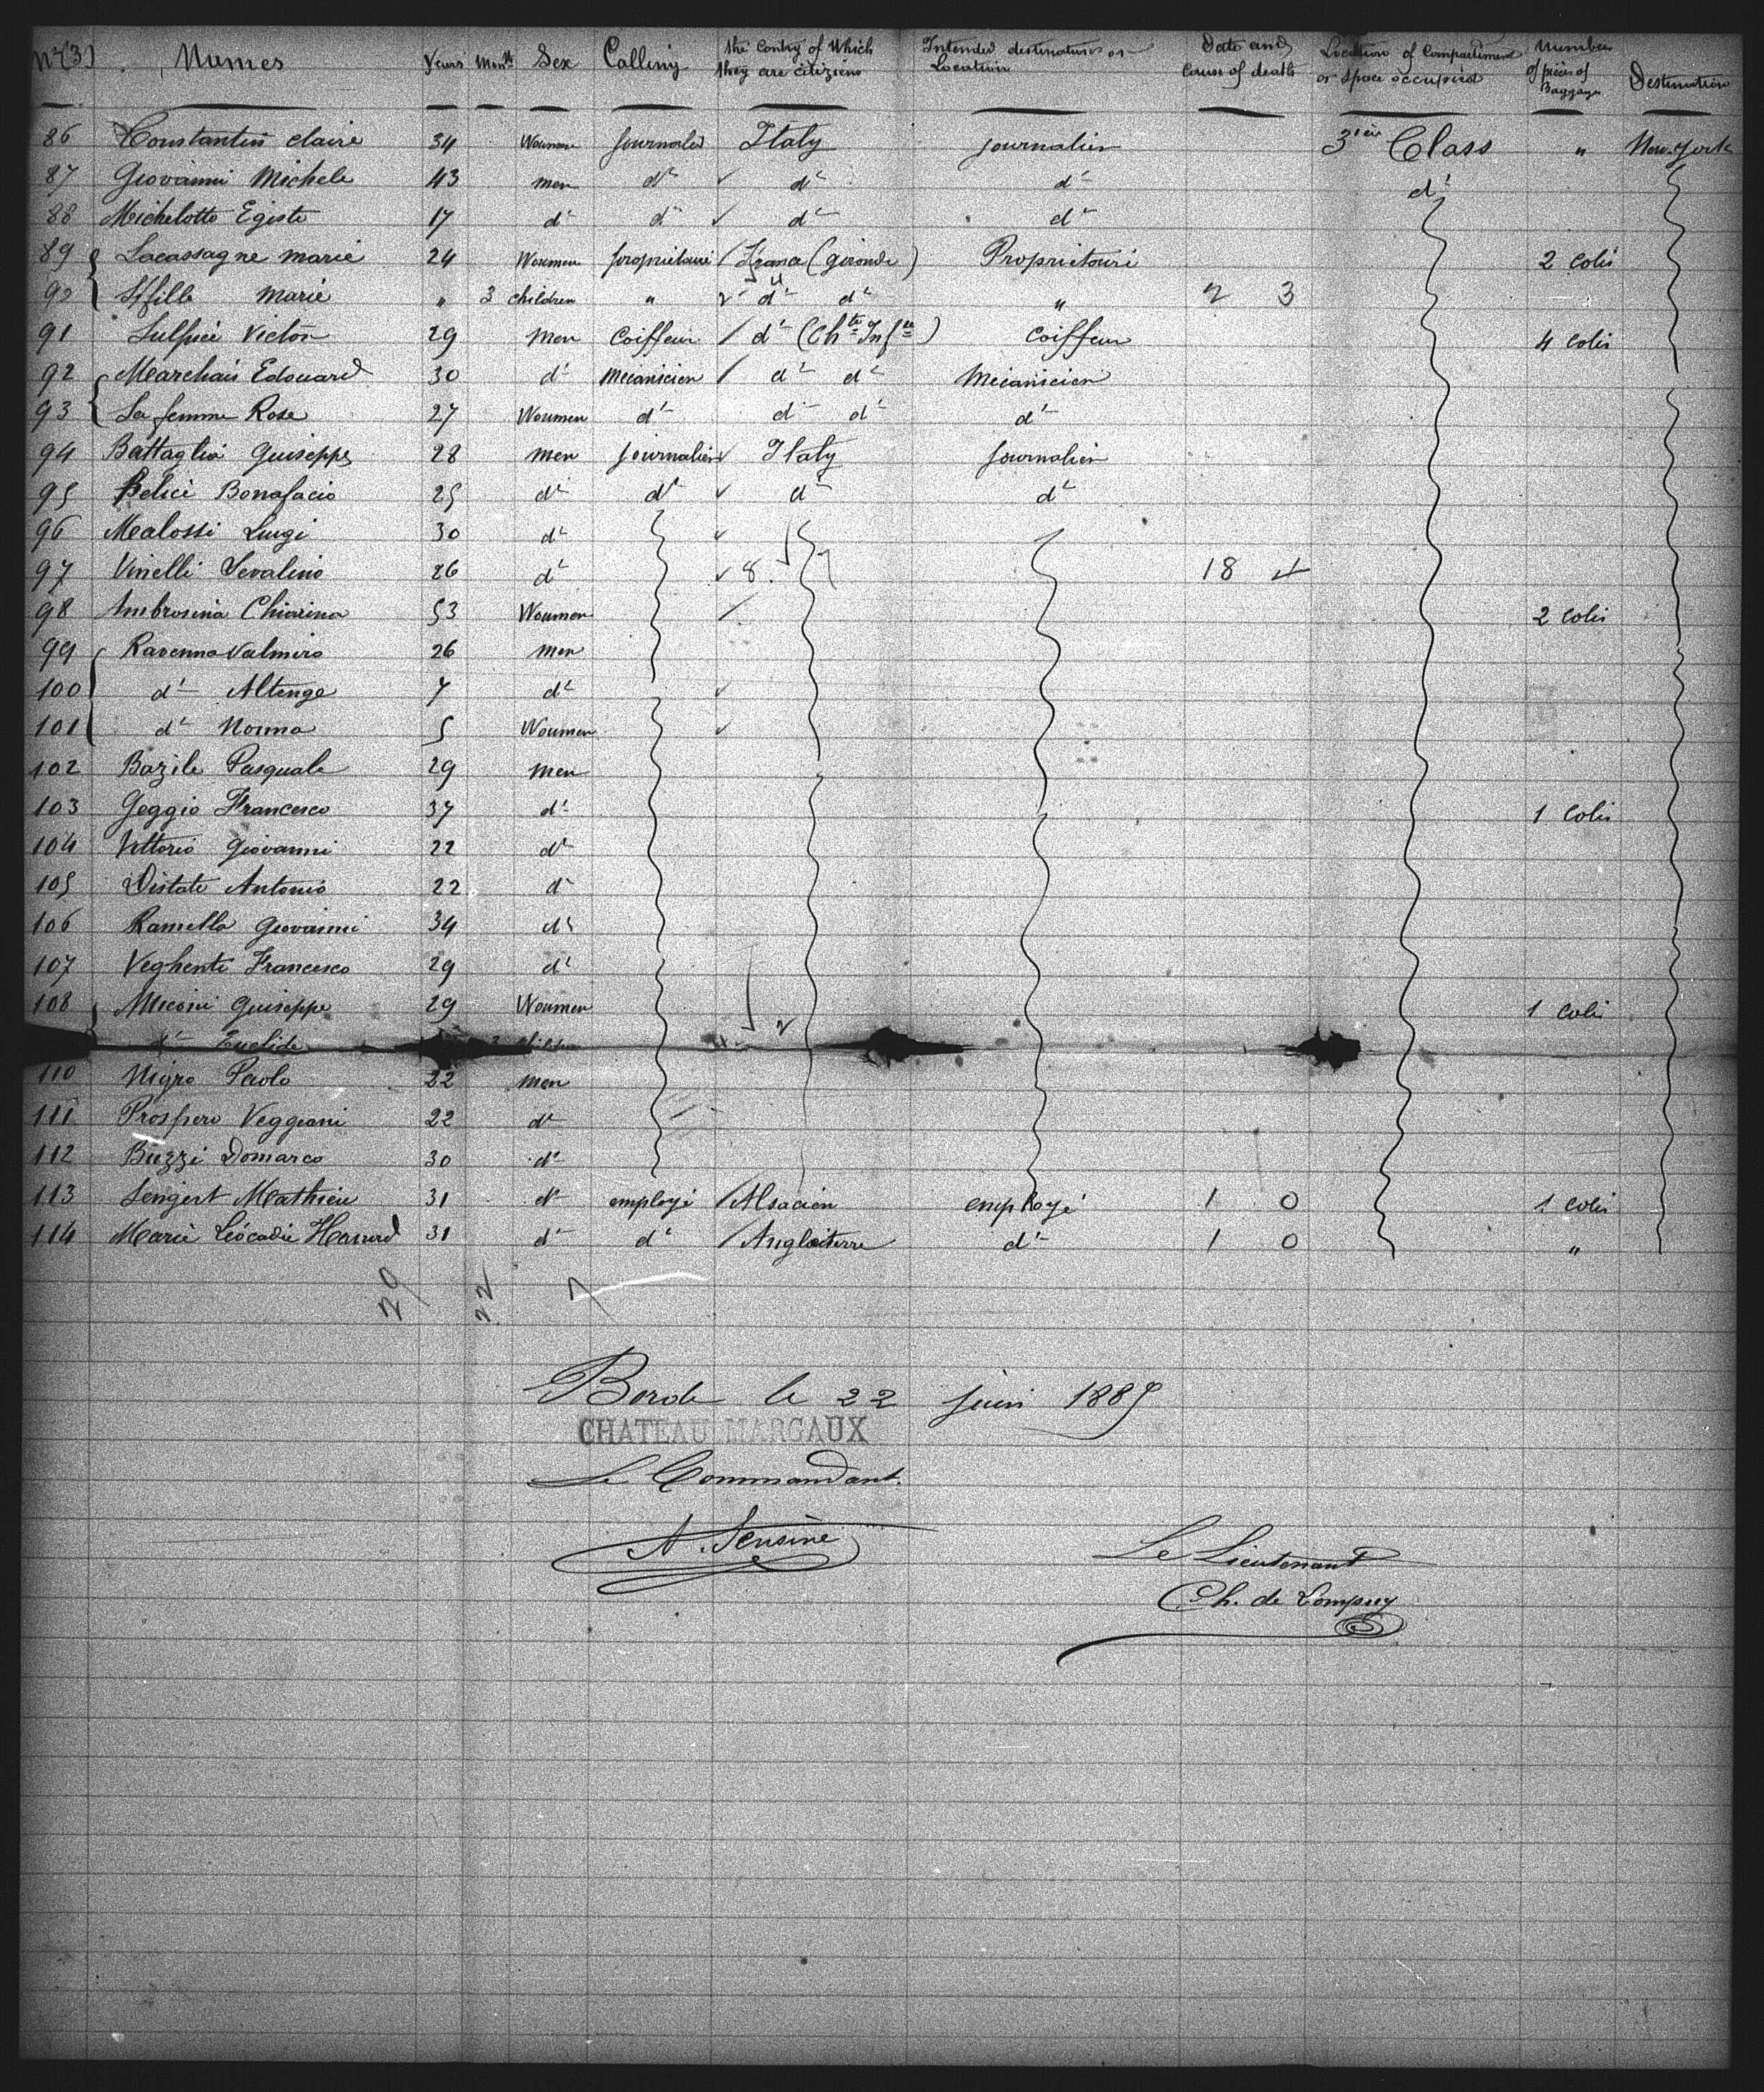 N° (3) Names Years Month Sex Calling the Contry of Which they are citiziens Intended destination or Location Date and Cause of death Location of Compartiment or space occupied Number of pieces of Baggage Destination
86 Constantin Claire 34 Woumen Journalier Italy journalier 3ième Class " New-York
87 Giovanni Michele 43 men d° d° d° d°
88 Michelotto Egisto 17 d° d° d° d°
89 Lacassagne marie 24 Woumen propriétaire France (gironde) Propriétaire 2 Colis
90 Sf fille Marie " 3 children " d° d° " 2 3
91 Sulpice Victor 29 Men Coiffeur d° (Chte Infre) Coiffeur 4 Colis
92 Marchais Edouard 30 d° Mecanicien d° d° Mécanicien
93 Sa femme Rose 27 Woumen d° d° d° d°
94 Battaglia Guiseppe 28 men journalier Italy journalier
95 Felici Bonafacio 25 d° d° d° d°
96 Malossi Luigi 30 d°
97 Vinelli Sevalino 26 d° 8 18 4
98 Ambrosina Chiarina 53 Woumen 2 Colis
99 Ravenna Valmiro 26 men
100 d° Altenge 7 d°
101 d° Norma 5 Woumen
102 Bazile Pasquale 29 men
103 Geggio Francesco 37 d° 1 Colis
104 Vittorio Giovanni 22 d°
105 Distate Antonio 22 d°
106 Ramella Giovanni 34 d°
107 Veghenti Francesco 29 d°
108 Miconi Guiseppe 29 Woumen 1 Colis
d° Euclide
110 Nigro Paolo 22 men
111 Prospero Veggiani 22 d°
112 Buzzi Domarco 30 d°
113 Sengert Mathieu 31 d° employé Alsacien employé 1 0 1 Colis
114 Marie Léocadie Harvord 31 d° d° Angleterre d° 1 0 "
29 22 7
Bord le 22 juin 1885
CHATEAU MARGAUX
Le Commandant.
A. Sensine
Le Lieutenant
Ch. de